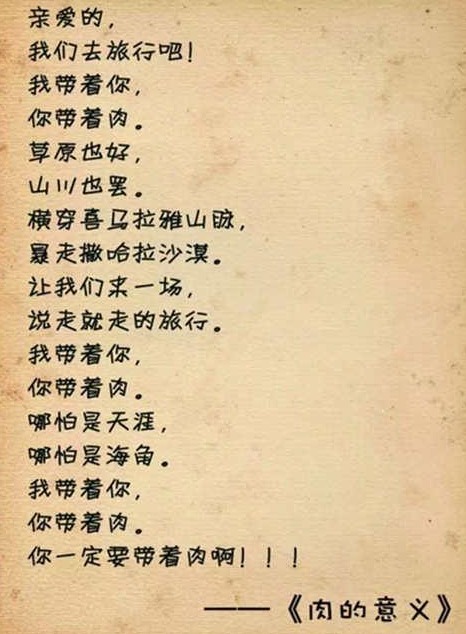 亲爱的，
我们去旅行吧！
我带着你，
你带着肉。
草原也好，
山川也罢。
横穿喜马拉雅山脉，
暴走撒哈拉沙漠。
让我们来一场，
说走就走的旅行。
我带着你，
你带着肉。
哪怕是天涯，
哪怕是海角。
我带着你，
你带着肉。
你一定要带着肉啊！！！
——《肉的意义》